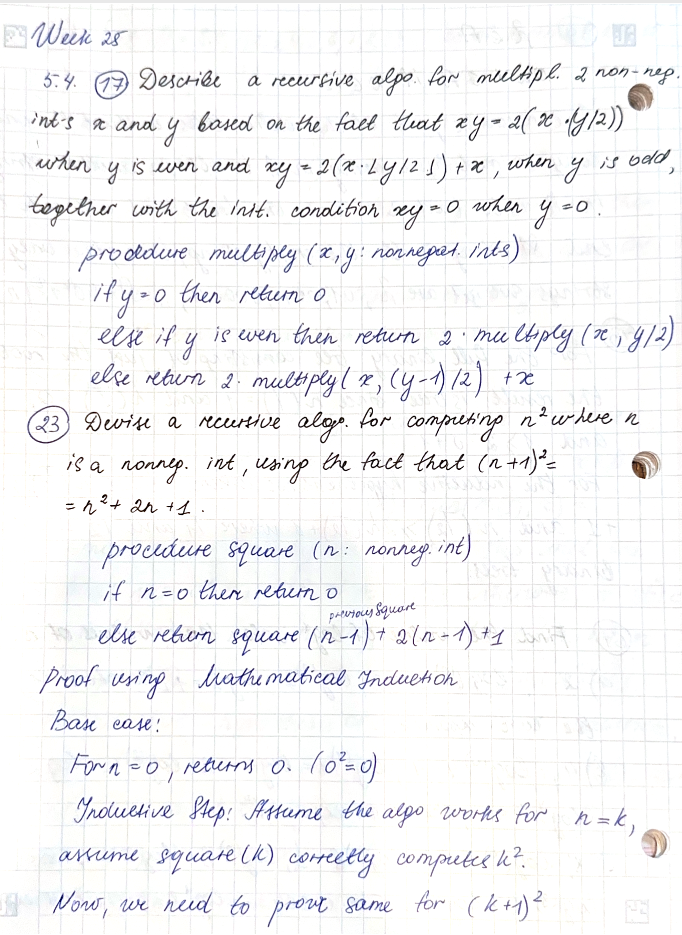 Week 28
5.4. (17) Describe a recursive algo. for multipl. 2 non-neg.
int-s x and y based on the fact that xy = 2(x·(y/2))
when y is even and xy = 2(x·⌊y/2⌋) + x, when y is odd,
together with the init. condition xy = 0 when y = 0.
procedure multiply (x, y: nonnegat. ints)
if y = 0 then return 0
else if y is even then return 2· multiply (x, y/2)
else return 2· multiply (x, (y-1)/2) + x
(23) Devise a recursive algo. for computing n² where n
is a nonneg. int, using the fact that (n+1)² =
= n² + 2n + 1.
procedure square (n: nonneg. int)
if n = 0 then return 0
previous square
else return square (n-1) + 2(n-1) + 1
Proof using Mathematical Induction
Base case:
For n = 0, returns 0. (0² = 0)
Inductive Step: Assume the algo works for n = k,
assume square (k) correctly computes k².
Now, we need to prove same for (k+1)²